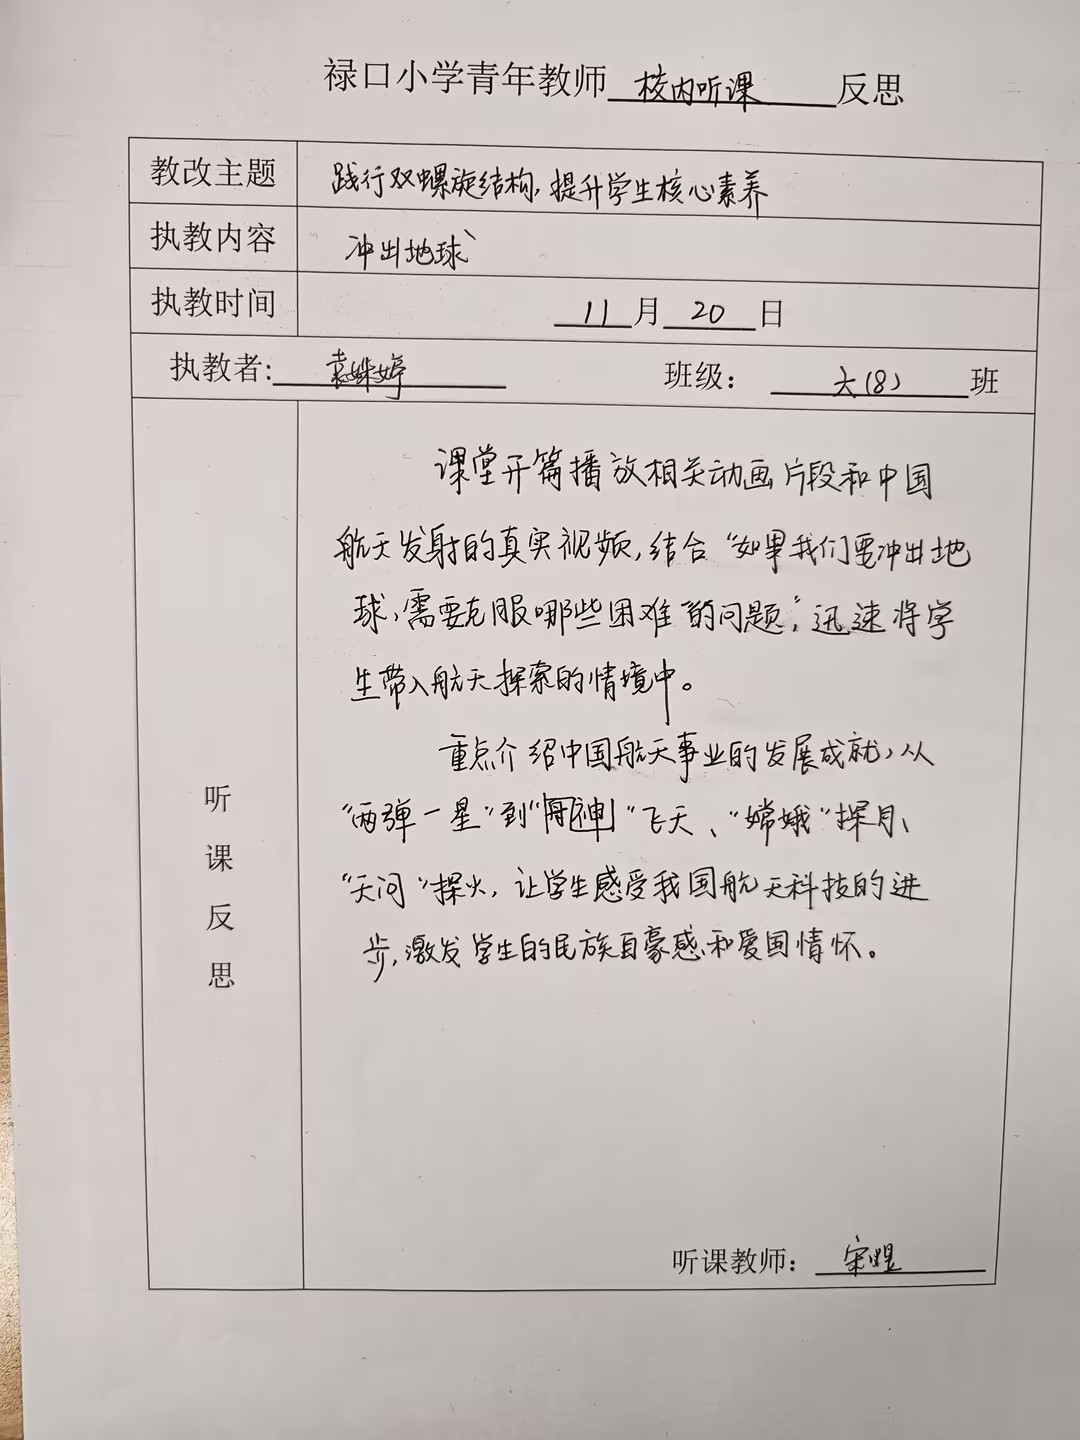 禄口小学青年教师 校内听课 反思
教改主题 践行双螺旋结构,提升学生核心素养
执教内容 冲出地球
执教时间 11月20日
执教者: 袁姝婷 班级: 六(8)班
课堂开篇播放相关动画片段和中国
航天发射的真实视频,结合“如果我们要冲出地
球,需要克服哪些困难”的问题”,迅速将学
生带入航天探索的情境中。
重点介绍中国航天事业的发展成就,从
“两弹一星”到“神”飞天、“嫦娥”探月、
“天问”探火,让学生感受我国航天科技的进
步,激发学生的民族自豪感和爱国情怀。
听
课
反
思
听课教师: 宋煜